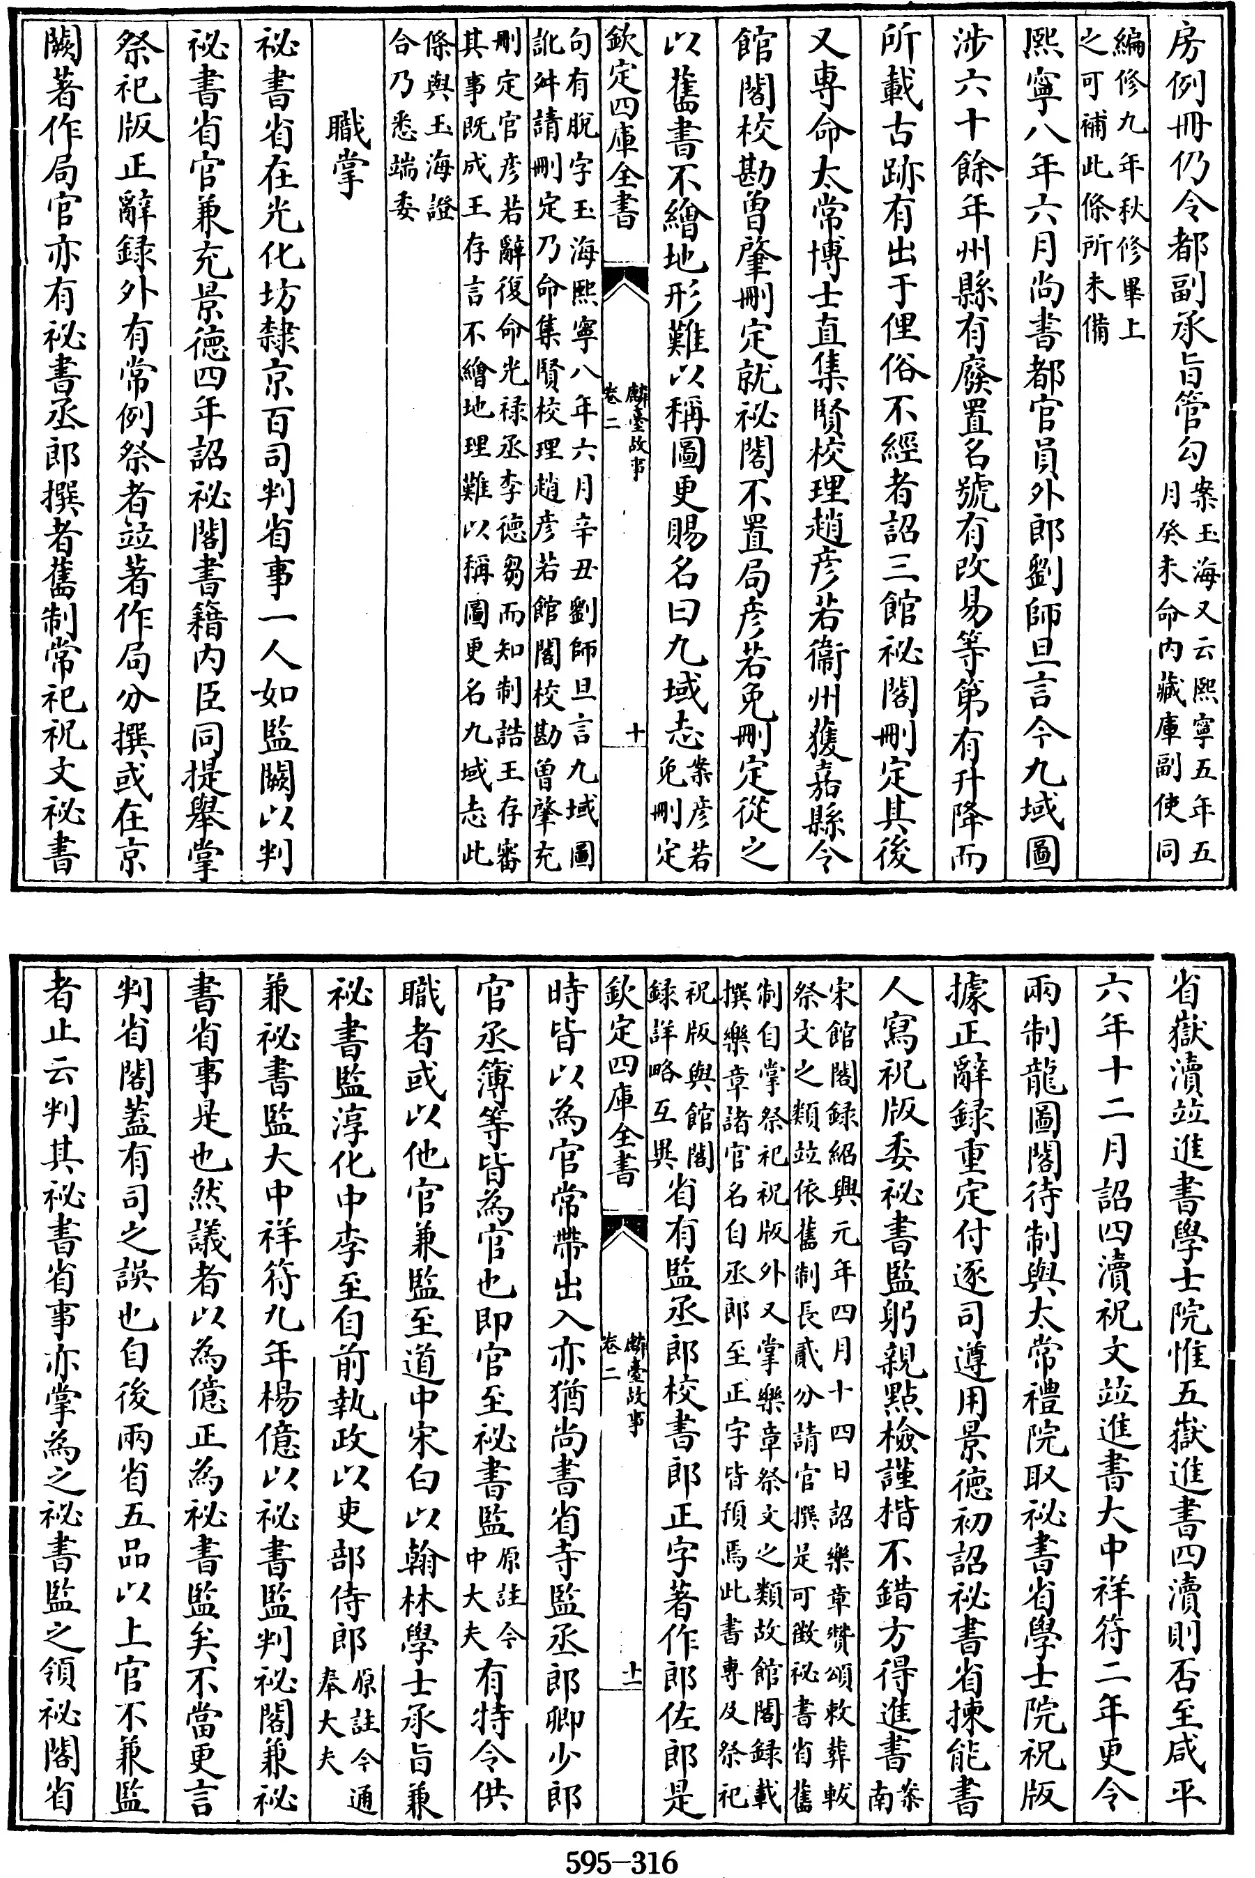 房例冊仍令都副承旨管勾案玉海又云熙寧五年五月癸未命内藏庫副使同
編修九年秋修畢上之可補此條所未備
熙寧八年六月尚書都官員外郎劉師旦言今九域圖
涉六十餘年州縣有廢置名號有改易等第有升降而
所載古跡有出于俚俗不經者詔三館秘閣刪定其後
又專命太常博士直集賢校理趙彦若衞州獲嘉縣令
館閣校勘曾肇刪定就祕閣不置局彦若免刪定從之
以舊書不繪地形難以稱圖更賜名曰九域志案彦若免刪定
欽定四庫全書
麟臺故事
卷二
十
句有脫字玉海熙寧八年六月辛丑劉師旦言九域圖訛舛請刪定乃命集賢校理趙彦若館閣校勘曾肇充
刪定官彦若辭復命光禄丞李德芻而知制誥王存審其事既成王存言不繪地理難以稱圖更名九域志此
條與玉海證合乃悉端委
職掌
祕書省在光化坊隸京百司判省事一人如監闕以判
祕書省官兼充景德四年詔祕閣書籍内臣同提舉掌
祭祀版正辭録外有常例祭者竝著作局分撰或在京
闕著作局官亦有祕書丞郎撰者舊制常祀祝文祕書
省嶽瀆竝進書學士院惟五嶽進書四瀆則否至咸平
六年十二月詔四瀆祝文竝進書大中祥符二年更令
兩制龍圖閣待制與太常禮院取祕書省學士院祝版
據正辭録重定付逐司遵用景德初詔祕書省揀能書
人寫祝版委祕書監躬親點檢謹楷不錯方得進書案南
宋館閣録紹興元年四月十四日詔樂章贊頌敕葬軷祭文之類竝依舊制長貳分請官撰是可徵祕書省舊
制自掌祭祀祝版外又掌樂章祭文之類故館閣録載撰樂章諸官名自丞郎至正字皆預焉此書專及祭祀
祝版與館閣録詳略互異省有監丞郎校書郎正字著作郎佐郎是
欽定四庫全書
麟臺故事
卷二
十一
時皆以為官常帶出入亦猶尚書省寺監丞郎卿少郎
官丞簿等皆為官也即官至祕書監原註今中大夫有特令供
職者或以他官兼監至道中宋白以翰林學士承旨兼
祕書監淳化中李至自前執政以吏部侍郎原註今通奉大夫
兼祕書監大中祥符九年楊億以祕書監判祕閣兼祕
書省事是也然議者以為億正為祕書監矣不當更言
判省閣蓋有司之誤也自後兩省五品以上官不兼監
者止云判其祕書省事亦掌為之祕書監之領祕閣省
595-316